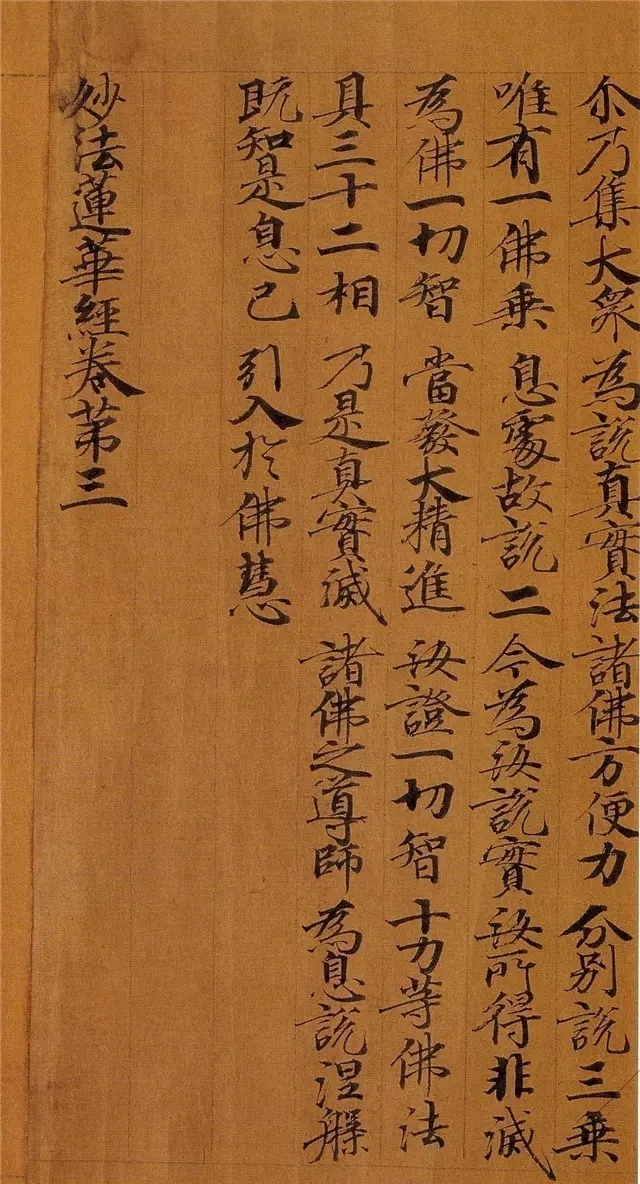 尒乃集大衆 為說真實法 諸佛方便力 分別說三乗
唯有一佛乗 息處故說二 今為汝說實 汝所得非滅
為佛一切智 當發大精進 汝證一切智 十力等佛法
具三十二相 乃是真實滅 諸佛之導師 為息說涅槃
既知是息已 引入於佛慧
妙法蓮華經卷苐三